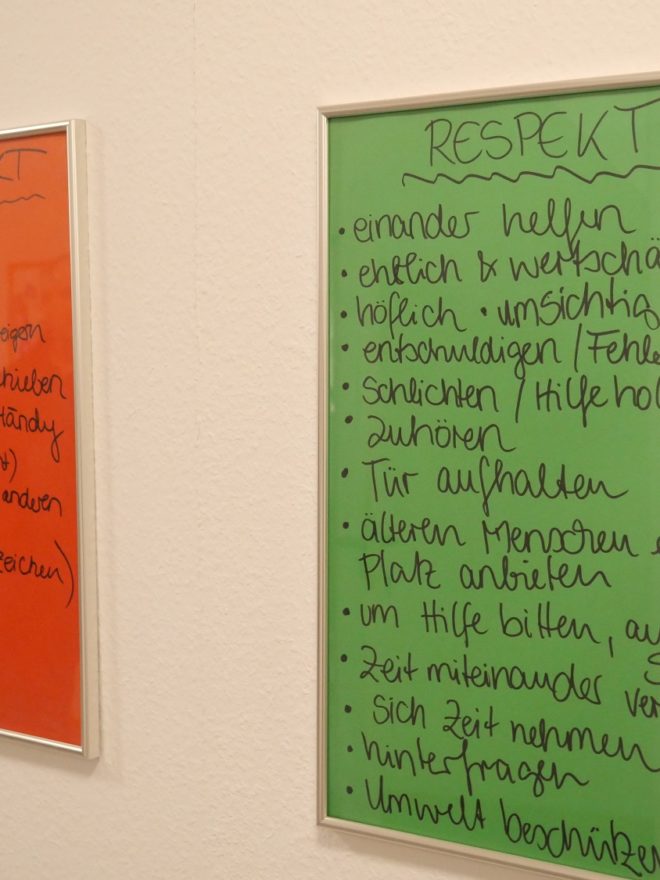 KT
eigen
hieben
Händy
t)
anderen
zeichen)
RESPEKT
• einander helfen
• ehrlich & wertschä
• höflich • umsichtig
• entschuldigen / Fehle
• schlichten / Hilfe hol
• zuhören
• Tür aufhalten
• älteren Menschen e
Platz anbieten
• um Hilfe bitten, au
• Zeit miteinander ver
• sich Zeit nehmen
• hinterfragen
• Umwelt beschützen